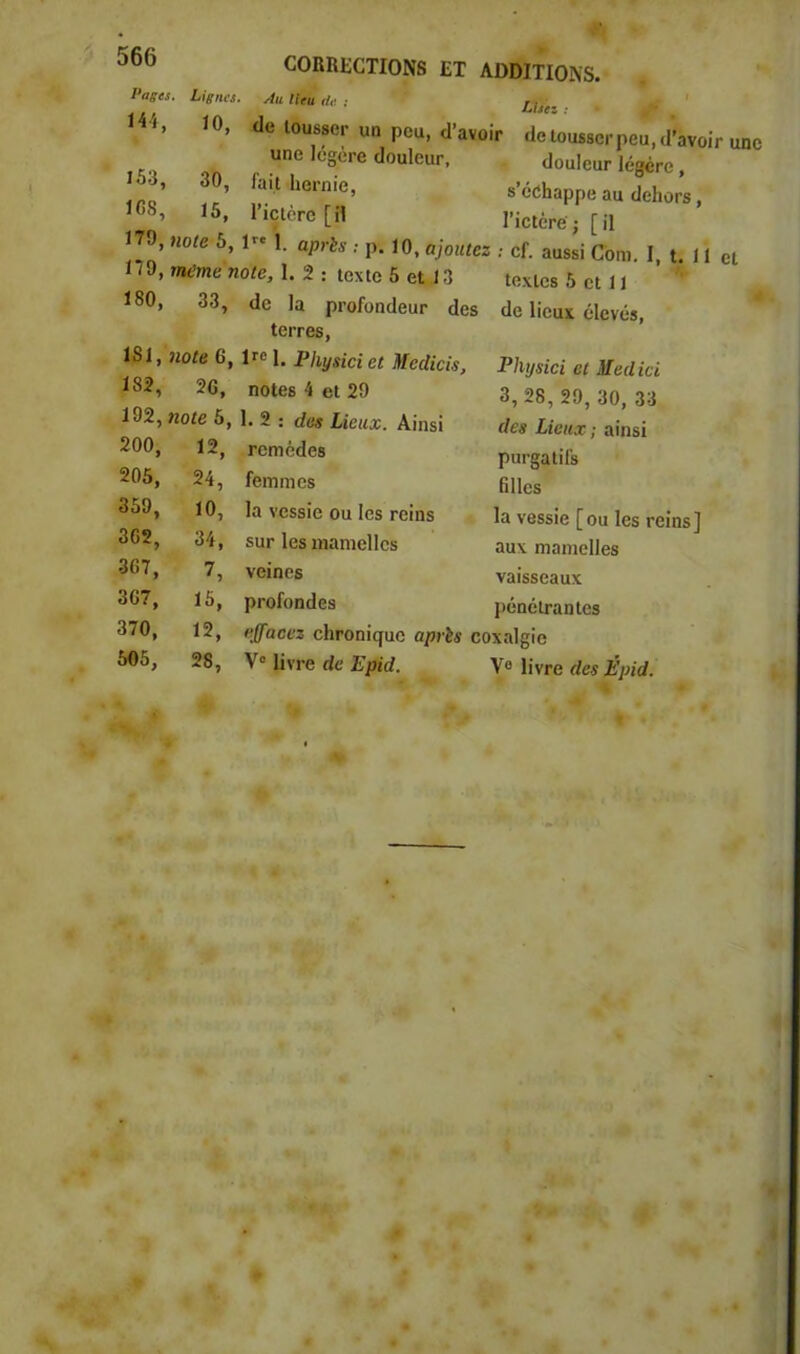 566
CORRECTIONS ET ADDITIONS.
Pages. Lignes. Au lieu de : Lisez :
144, 10, de tousser un peu, d'avoir de tousser peu, d'avoir une
une légère douleur, douleur légère,
153, 30, fait hernie, s'échappe au dehors,
168, 15, l'ictère [il l'ictère; [il
179, note 5, 1re l. après : p. 10, ajoutez : cf. aussi Com. I, t. 11 et
179, même note, l. 2 : texte 5 et 13 textes 5 et 11
180, 33, de la profondeur des de lieux élevés,
terres,
181, note 6, 1re l. Physici et Medicis, Physici et Medici
182, 26, notes 4 et 29 3, 28, 29, 30, 33
192, note 5, l. 2 : des Lieux. Ainsi des Lieux; ainsi
200, 12, remèdes purgatifs
205, 24, femmes filles
359, 10, la vessie ou les reins la vessie [ou les reins]
362, 34, sur les mamelles aux mamelles
367, 7, veines vaisseaux
367, 15, profondes pénétrantes
370, 12, effacez chronique après coxalgie
505, 28, Ve livre de Epid. Ve livre des Épid.